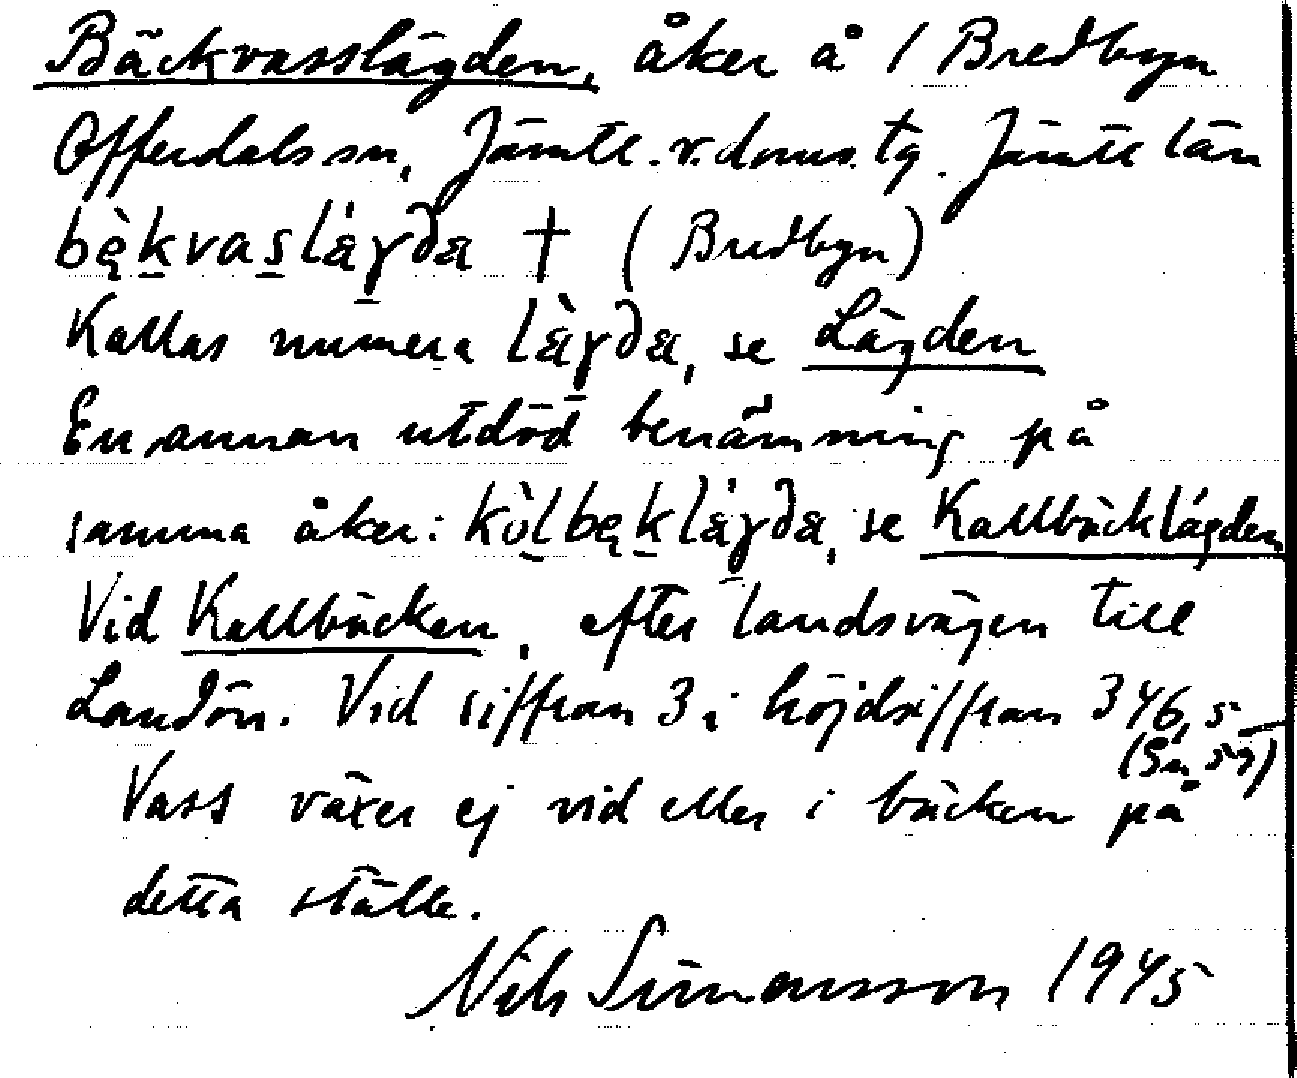 Bäckvasslägden, åker å 1 Bredbyn
Offerdals sn, Jämtl. v. doms. tg. Jämtl län
bę̀kvaslǻγδa † (Bredbyn)
Kallas numera lǻγδa, se Lägden
En annan utdöd benämning på
samma åker: kòlbękláγδa, se Kallbäcklägden
Vid Kallbäcken, efter landsvägen till
Landön. Vid siffran 3 i höjdsiffran 346,5
(Sn 59)
Vass växer ej vid eller i bäcken på
detta ställe.
Nils Simonsson 1945